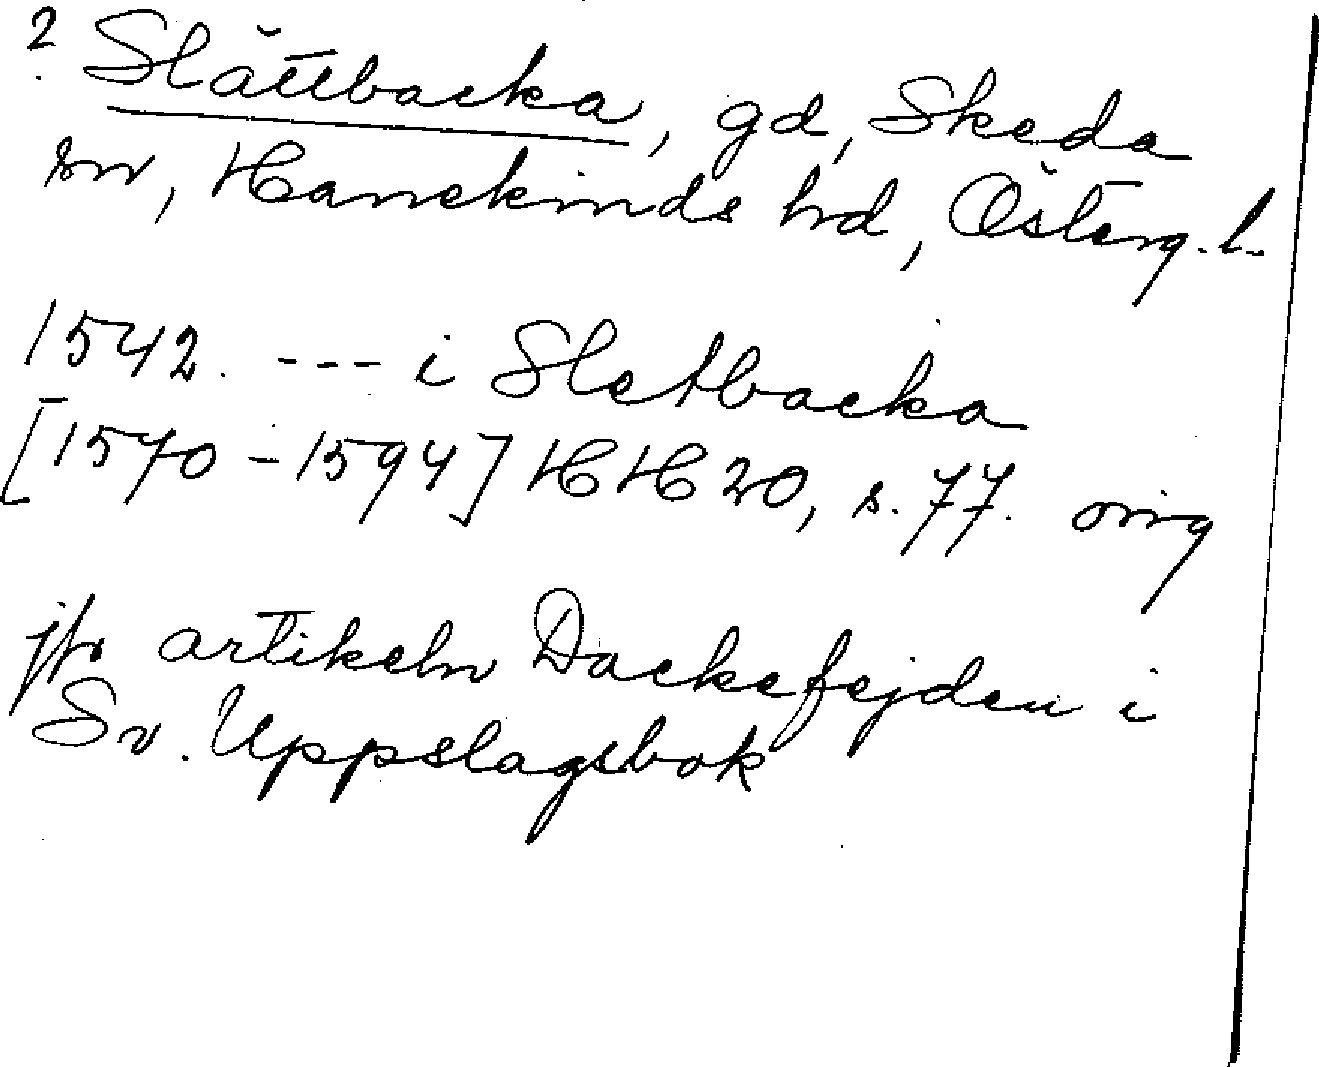 ? Slättbacka, gd, Skeda
sn, Hanekinds hd, Österg. l.
1542. --- i Sletbacka
[1570-1594] HH 20, s. 77. orig
jfr artikeln Dackefejden i
Sv. Uppslagsbok